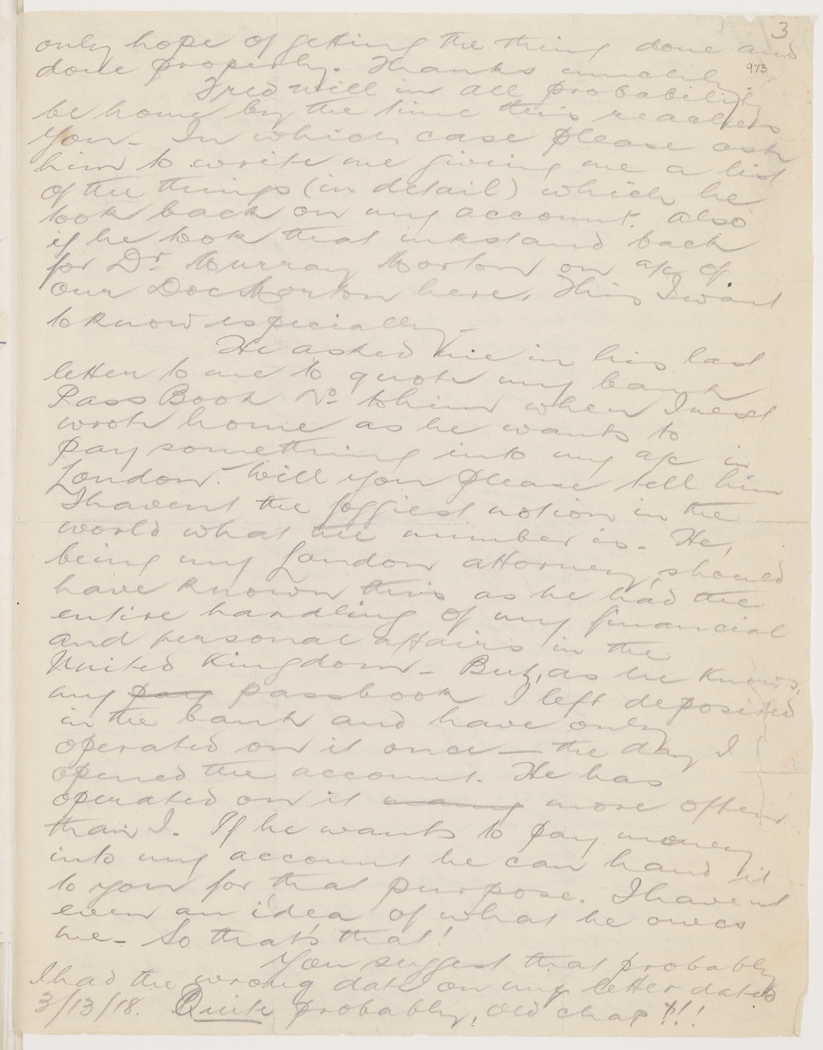 3
973
only hope of getting the thing done and
done properly. Thanks muchly.
Fred will in all probability
be home by the time this reaches
you - In which case please ask
him to write me giving me a list
of the things (in detail) which he
took back on my account. Also
if he took that inkstand back
for Dr. Murray Morton on a/c of
our Doc Morton here. This I want
to know especially -
He asked me in his last
letter to me to quote my bank
Pass Book No. to him when I next
wrote home as he wants to
pay something into my a/c in
London. Will you please tell him
I havent the foggiest notion in the
world what the number is - He,
being my London attorney, should
have known this as he had the
entire handling of my financial
and personal affairs in the
United Kingdom - But, as he knows,
my pay passbook I left deposited
in the bank and have only
operated on it once - the day I
opened the account. He has
operated on it many more often
than I. If he wants to pay money
into my account he can hand it
to you for that purpose. I havent
even an idea of what he owes
me - So that's that!
You suggest that probably
I had the wrong date on my letter dated
3/13/18. Quite probably, old chap!!!